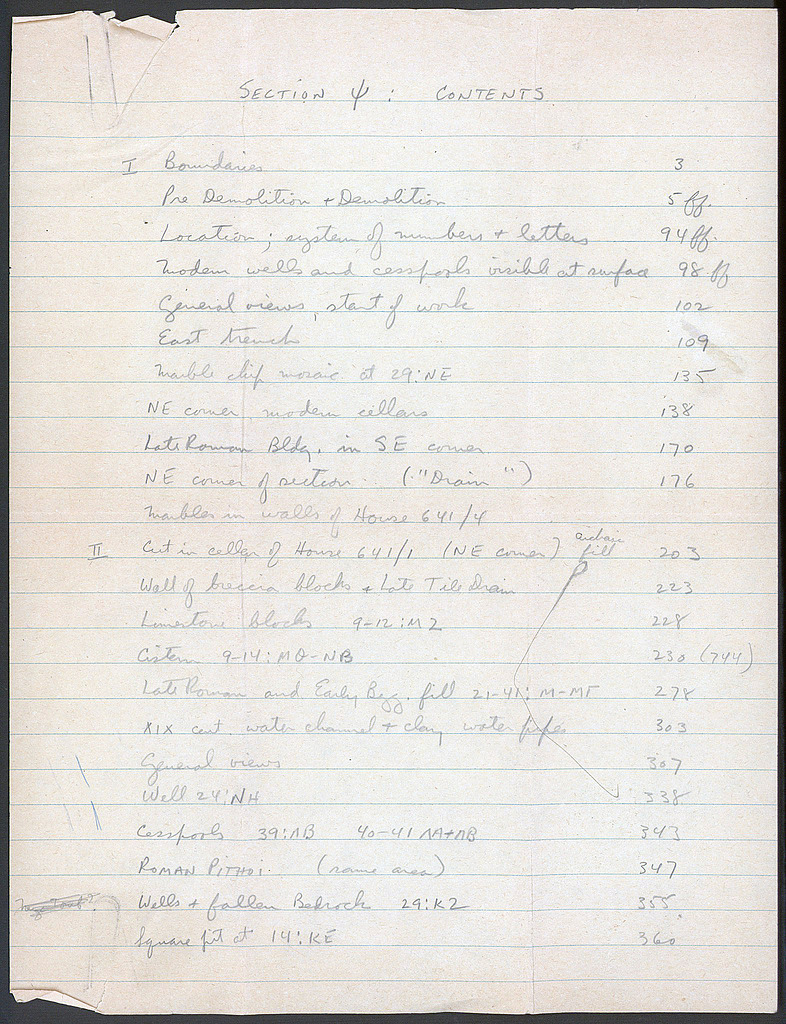 SECTION Ψ : CONTENTS
I Boundaries 3
Pre Demolition + Demolition 5 ff.
Location ; system of numbers + letters 94 ff.
Modern wells and cesspools visible at surface 98 ff
General views, start of work 102
East trench 109
Marble chip mosaic at 29:NE 135
NE corner, modern cellars 138
Late Roman Bldg. in SE corner 170
NE corner of section ("Drain") 176
Marbles in walls of House 641/4
II Cut in cellar of House 641/1 (NE corner) archaic fill 203
Wall of breccia blocks + Late Tile Drain 223
Limestone blocks 9-12:MZ 228
Cistern 9-14:MΘ-NB 230 (744)
Late Roman and Early Byz. fill 21-41:M-MΓ 278
XIX cent. water channel + clay water pipes 303
General views 307
Well 24:NH 338
Cesspools 39:ΛB 40-41 ΛA+ΛB 343
ROMAN PITHOI (same area) 347
Wells + fallen Bedrock 29:KZ 355
Square pit at 14:KE 360